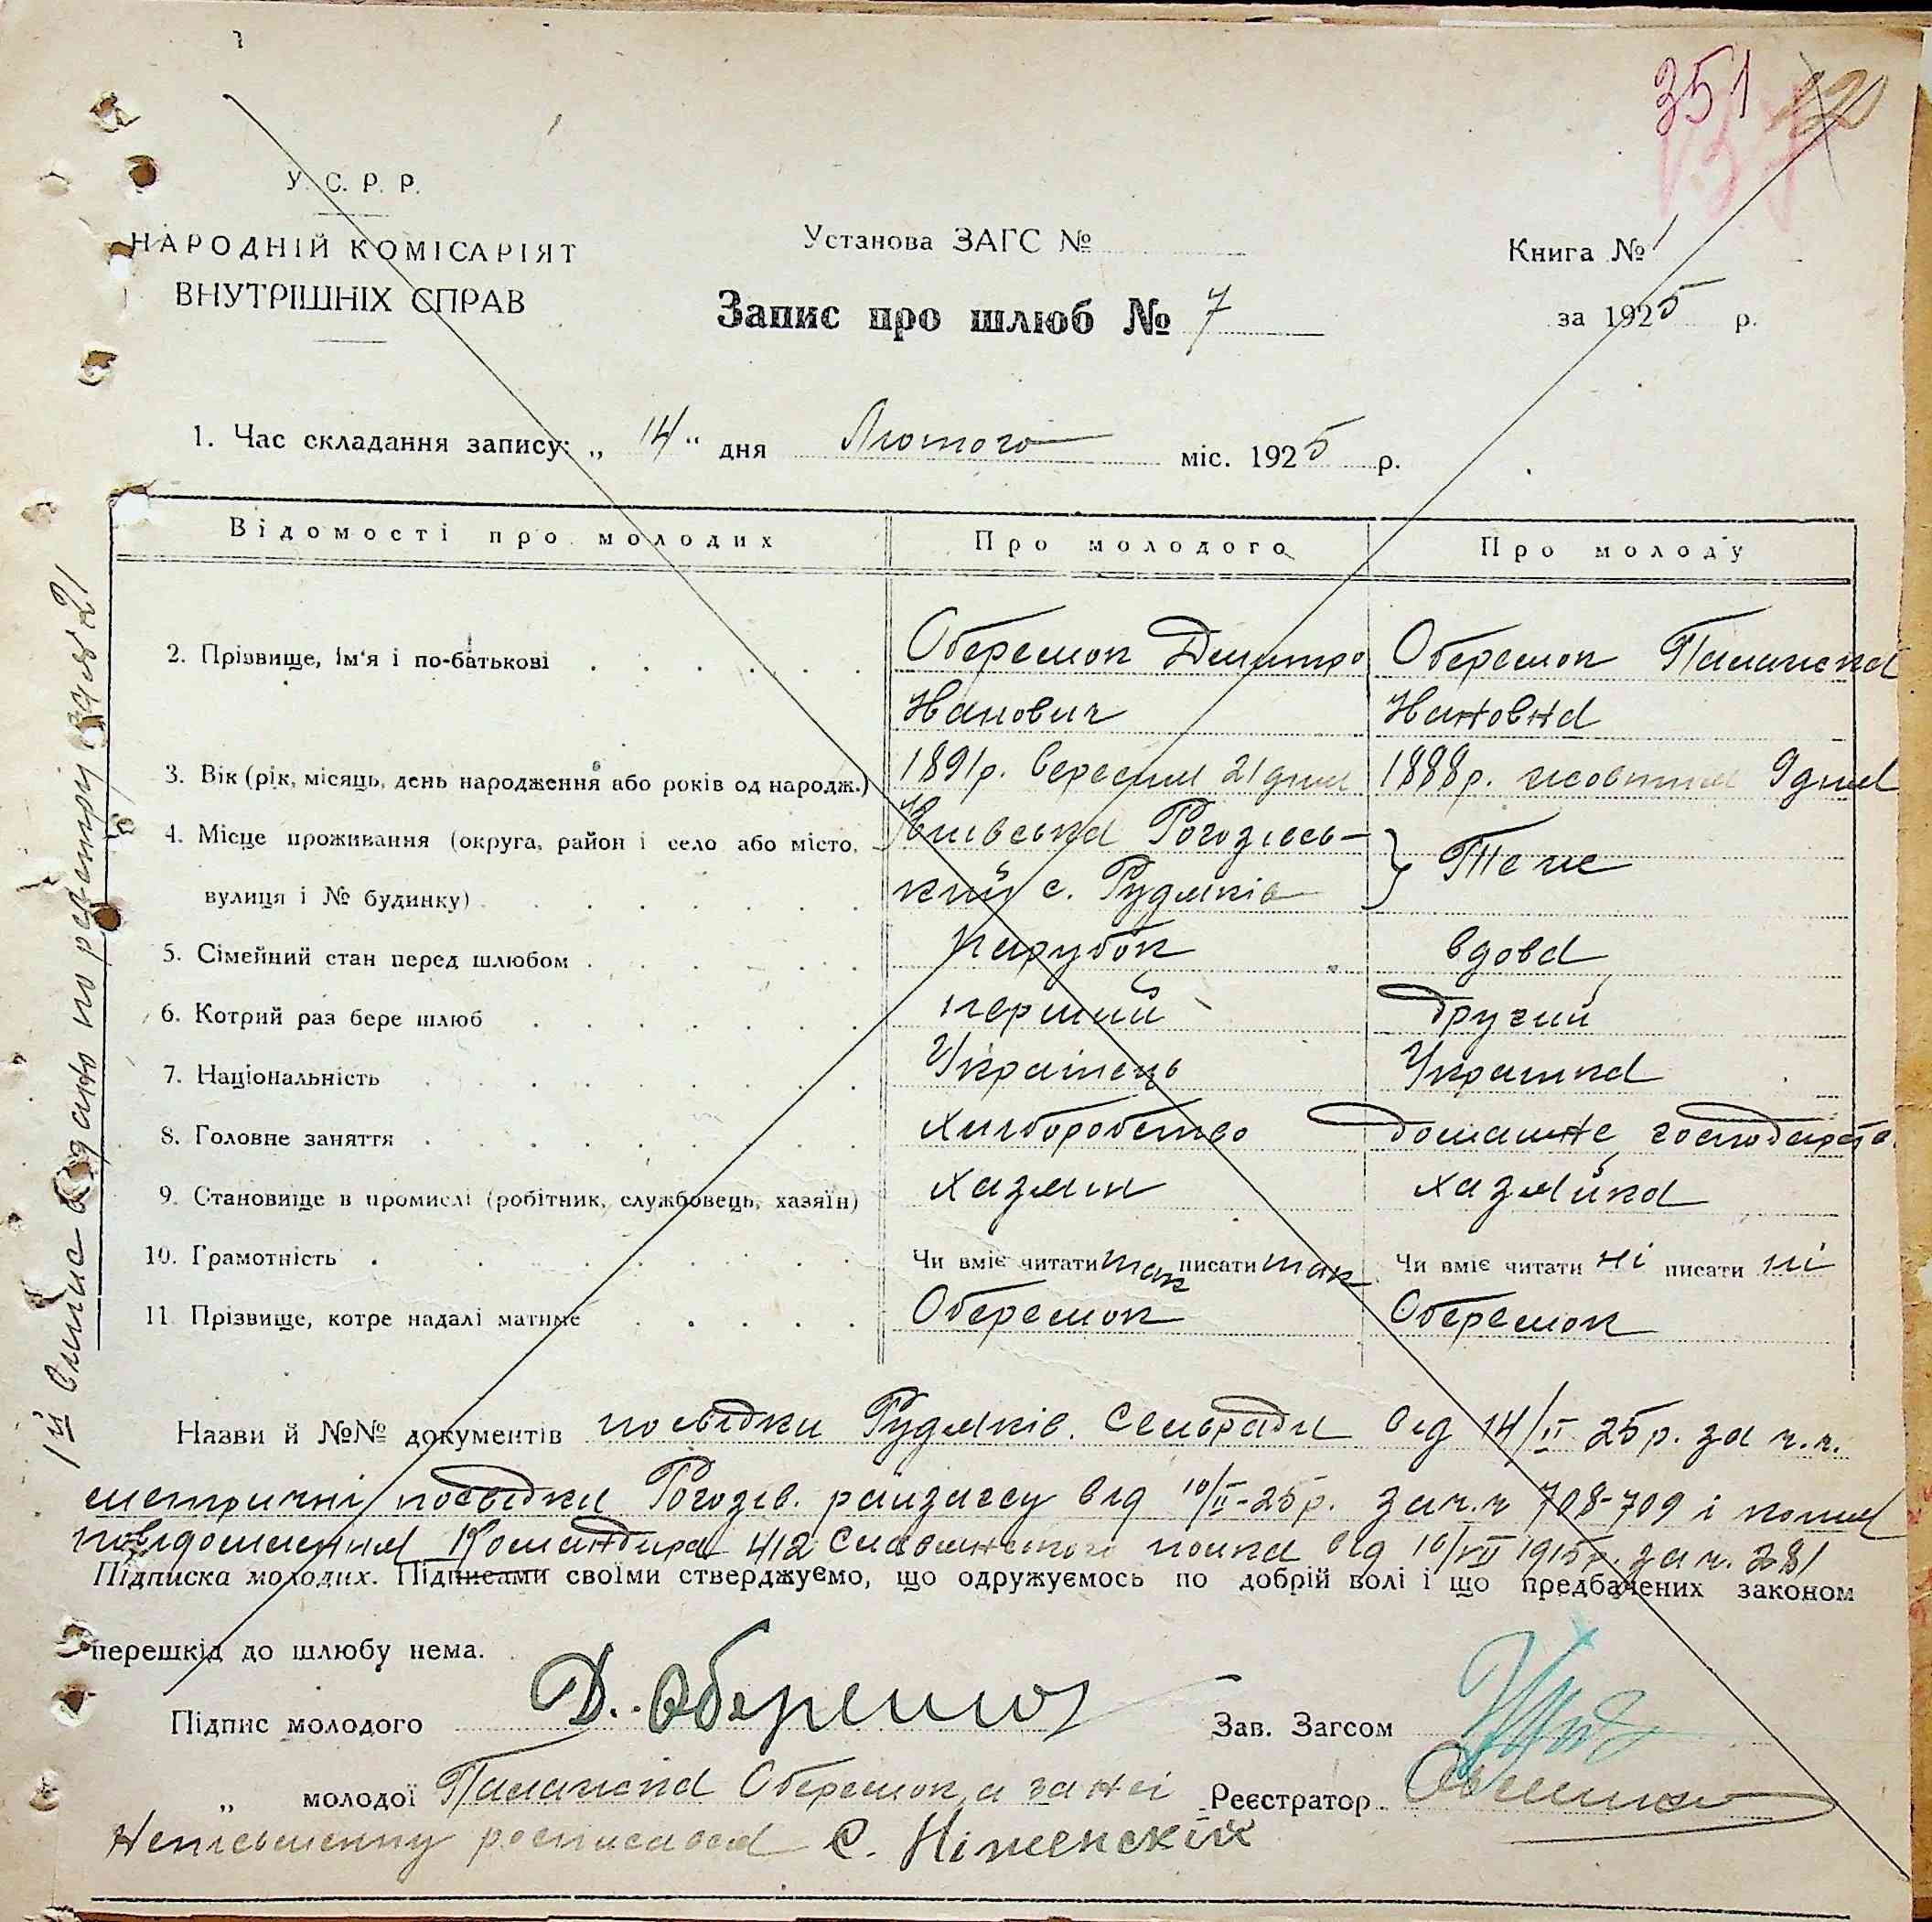 351
У. С. Р. Р.
НАРОДНІЙ КОМІСАРІЯТ
ВНУТРІШНІХ СПРАВ
Установа ЗАГС №
Запис про шлюб № 7
Книга № 1
за 1925 р.
1. Час складання запису: „ 14 “ дня Лютого міс. 1925 р.
Відомості про молодих Про молодого Про молоду
2. Прізвище, ім'я і по-батькові Оберемок Дмитро Оберемок Палажка
3. Вік (рік, місяць, день народження або років од народж.) 1891р. вересня 21 дня 1888р. жовтня 9 дня
4. Місце проживання (округа, район і село або місто, Київська Рогозівсь- Теж
вулиця і № будинку) кий с. Рудяків
5. Сімейний стан перед шлюбом парубок вдова
6. Котрий раз бере шлюб перший другий
7. Національність Українець Українка
8. Головне заняття хліборобство домашнє господарств
9. Становище в промислі (робітник, службовець, хазяїн) хазяїн хазяйка
10. Грамотність Чи вміє читати так писати так Чи вміє читати ні писати ні
11. Прізвище, котре надалі матиме Оберемок Оберемок
Назви й №№ документів посвідки Рудяків. Сельради від 14/II 25р. за ч.ч.
метричні посвідки Рогозів. райзагсу від 10/II-25р. за ч.ч 708-709 і копия
повідомлення Командира 412 Славянского полка від 10/VII 1915р. за ч. 281
Підписка молодих. Підписами своїми стверджуємо, що одружуємось по добрій волі і що предбачених законом
перешкід до шлюбу нема.
Підпис молодого Д. Оберемок Зав. Загсом
„ молодої Палажка Оберемок, а за неї Реєстратор
Неписьменну росписався С. Ніженскій
1й випис видано по реєстру за № 21